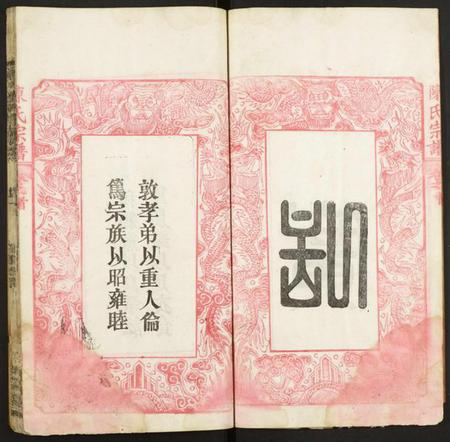 陳氏宗譜
敦孝弟以重人倫
篤宗族以昭雍睦
陳氏宗譜